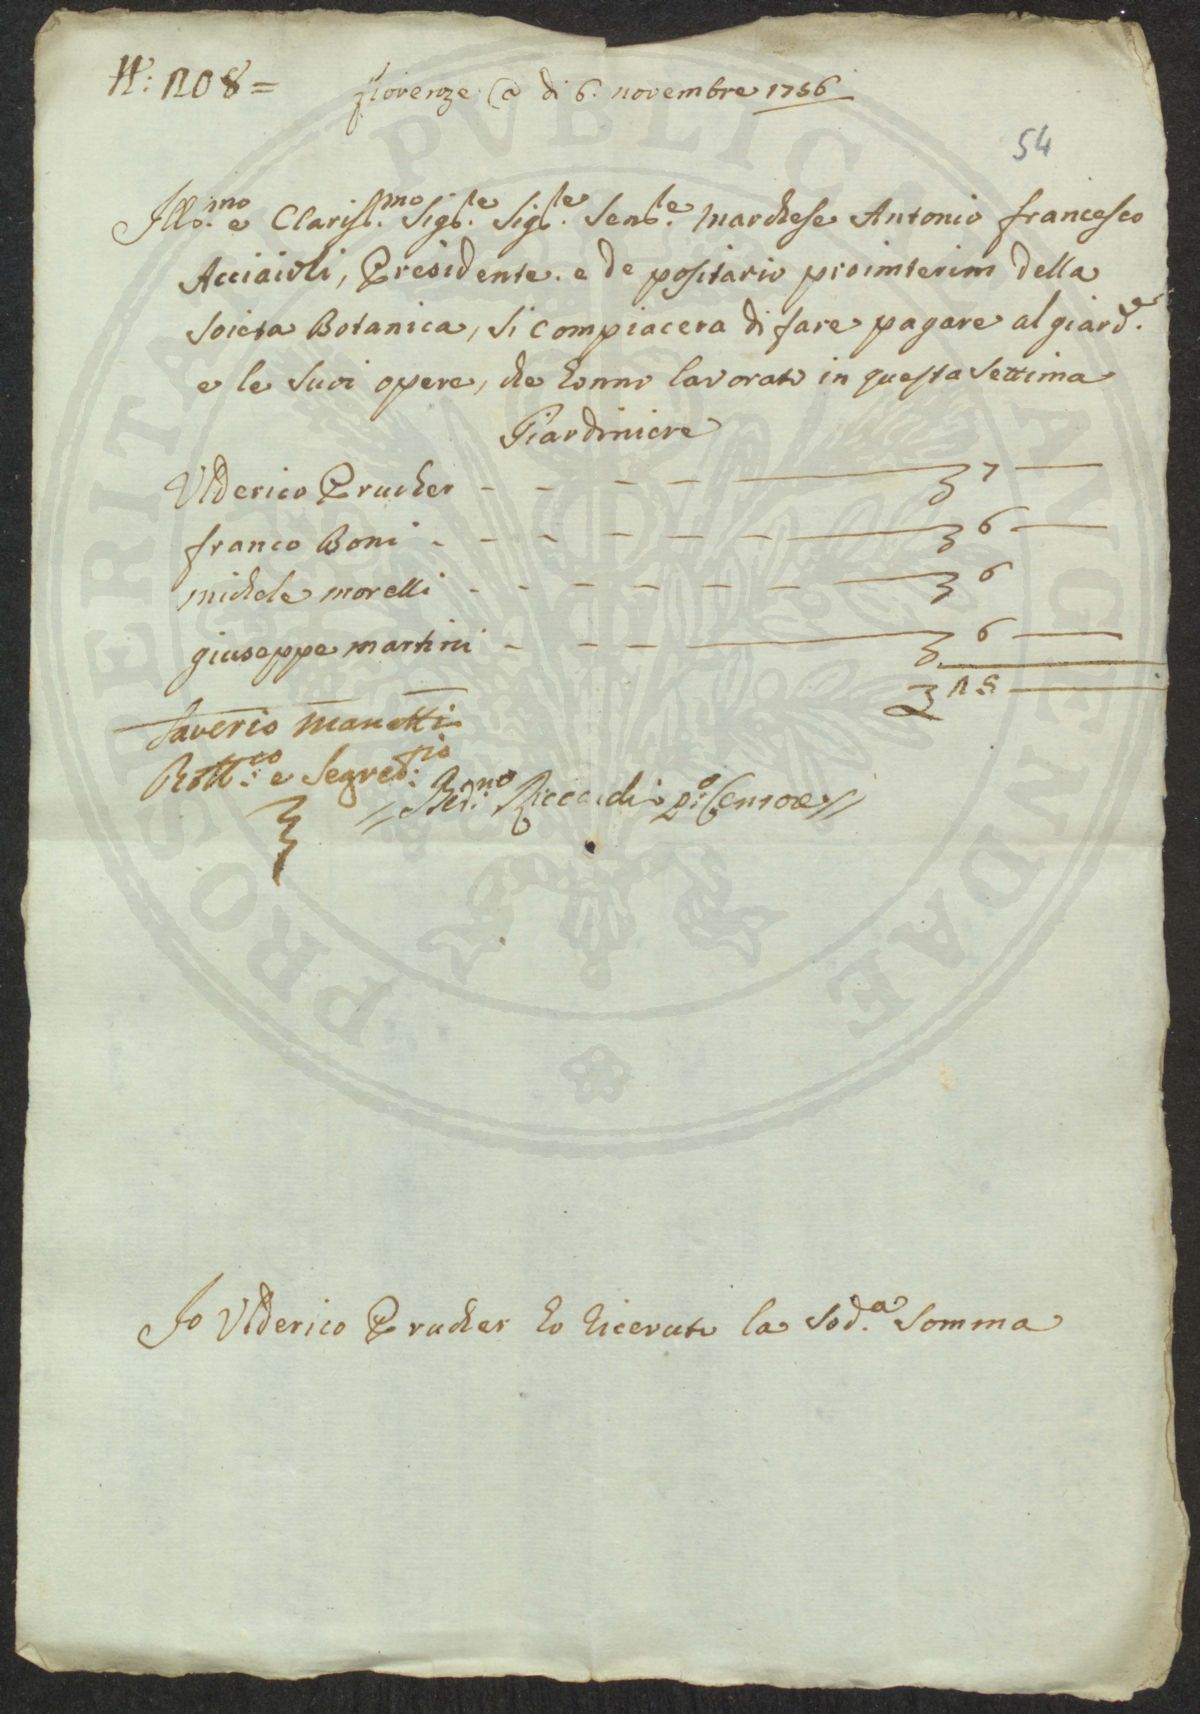 N: 1208=
fiorenze (a di 6. novembre 1756
54
Ill:mo e Clariss:mo Sig:re Sig:re Sen:re Marchese Antonio francesco
Acciaioli, Presidente. e de positario prointerim della
Soieta Botanica, si compiacera di fare pagare al giard:e
e le suoi opere, che honno lavorato in questa settima
Giardiniere
Ulderico Prucher - - - - 7 —
franco Boni - - - - - - 6 —
michele morelli - - - - - - 6
giuseppe martini - - - 6 —
25 —
Saverio Manetti
Bott:co e Segret:rio
Ber:no Riccardi p:o Censore //
Io Ulderico Prucher ho ricevuto la sod:a somma
PUBLIC
PROSPERITATI
AUGENDAE